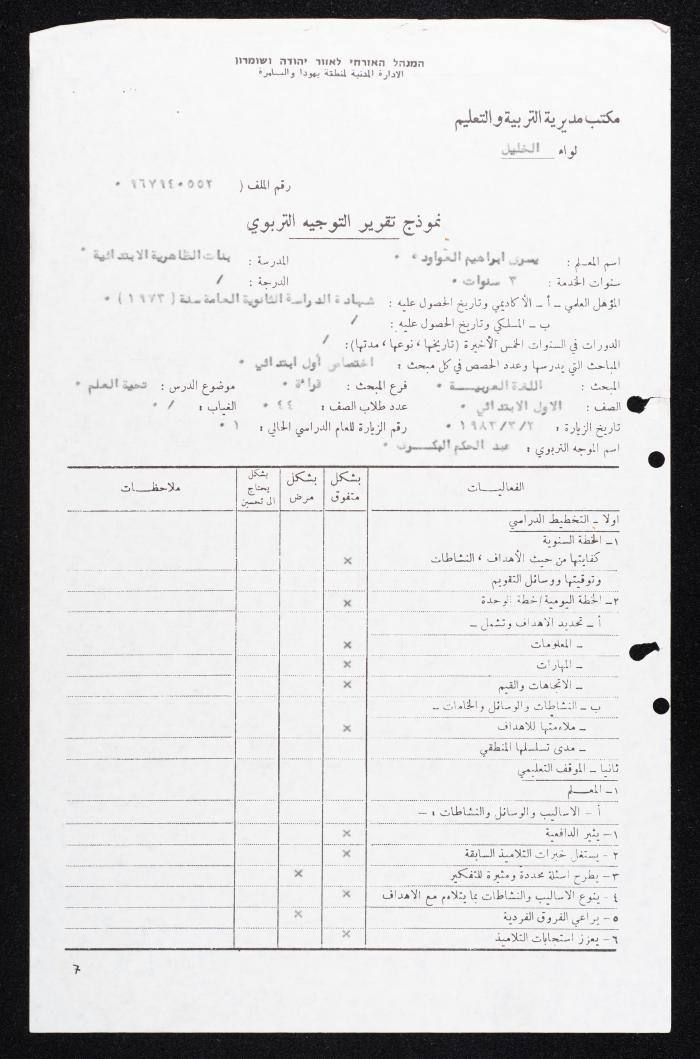 המנהל האזרחי לאזור יהודה ושומרון
الادارة المدنية لمنطقة يهودا والسامرة
مكتب مديرية التربية والتعليم
لواء الخليل
رقم الملف ( ٩٦٧٩٤٠٥٥٢ ٠
نموذج تقرير التوجيه التربوي
اسم المعلم : يسرى ابراهيم العواوده ٠ المدرسة : بنات الظاهرية الابتدائية ٠
سنوات الخدمة : ٣ سنوات ٠ الدرجة : /
المؤهل العلمي ـ أ ـ الأكاديمي وتاريخ الحصول عليه : شهادة الدراسة الثانوية العامة سنة ( ١٩٧٣ ) ٠
ب ـ المسلكي وتاريخ الحصول عليه : /
الدورات في السنوات الخمس الأخيرة (تاريخها، نوعها، مدتها): /
المباحث التي يدرسها وعدد الحصص في كل مبحث : اختصاص أول ابتدائي ٠
المبحث : اللغة العربيـــة ٠ فرع المبحث : قراءة ٠ موضوع الدرس : تحية العلم ٠
الصف : الاول الابتدائي ٠ عدد طلاب الصف : ٤٤ ٠ الغياب : / ٠
تاريخ الزيارة : ١٩٨٣/٣/٢ ٠ رقم الزيارة للعام الدراسي الحالي : ١ ٠
اسم الموجه التربوي : عبد الحكم ٠
الفعاليـــات بشكل متفوق بشكل مرض بشكل يحتاج الى تحسين ملاحظـــات
اولا ـ التخطيط الدراسي
١ـ الخطة السنوية
كفايتها من حيث الأهداف ، النشاطات ×
وتوقيتها ووسائل التقويم
٢ـ الخطة اليومية/خطة الوحدة ×
أ ـ تحديد الاهداف وتشمل ـ
ـ المعلومات ×
ـ المهارات ×
ـ الاتجاهات والقيم ×
ب ـ النشاطات والوسائل والخامات ـ
ـ ملاءمتها للاهداف ×
ـ مدى تسلسلها المنطقي
ثانيا ـ الموقف التعليمي
١ـ المعـــلم
أ - الاساليب والوسائل والنشاطات : —
١- يثير الدافعية ×
٢ - يستغل خبرات التلاميذ السابقة ×
٣- يطرح اسئلة محددة ومثيرة للتفكير ×
٤ - ينوع الاساليب والنشاطات بما يتلاءم مع الاهداف ×
٥ - يراعي الفروق الفردية ×
٦- يعزز استجابات التلاميذ ×
7